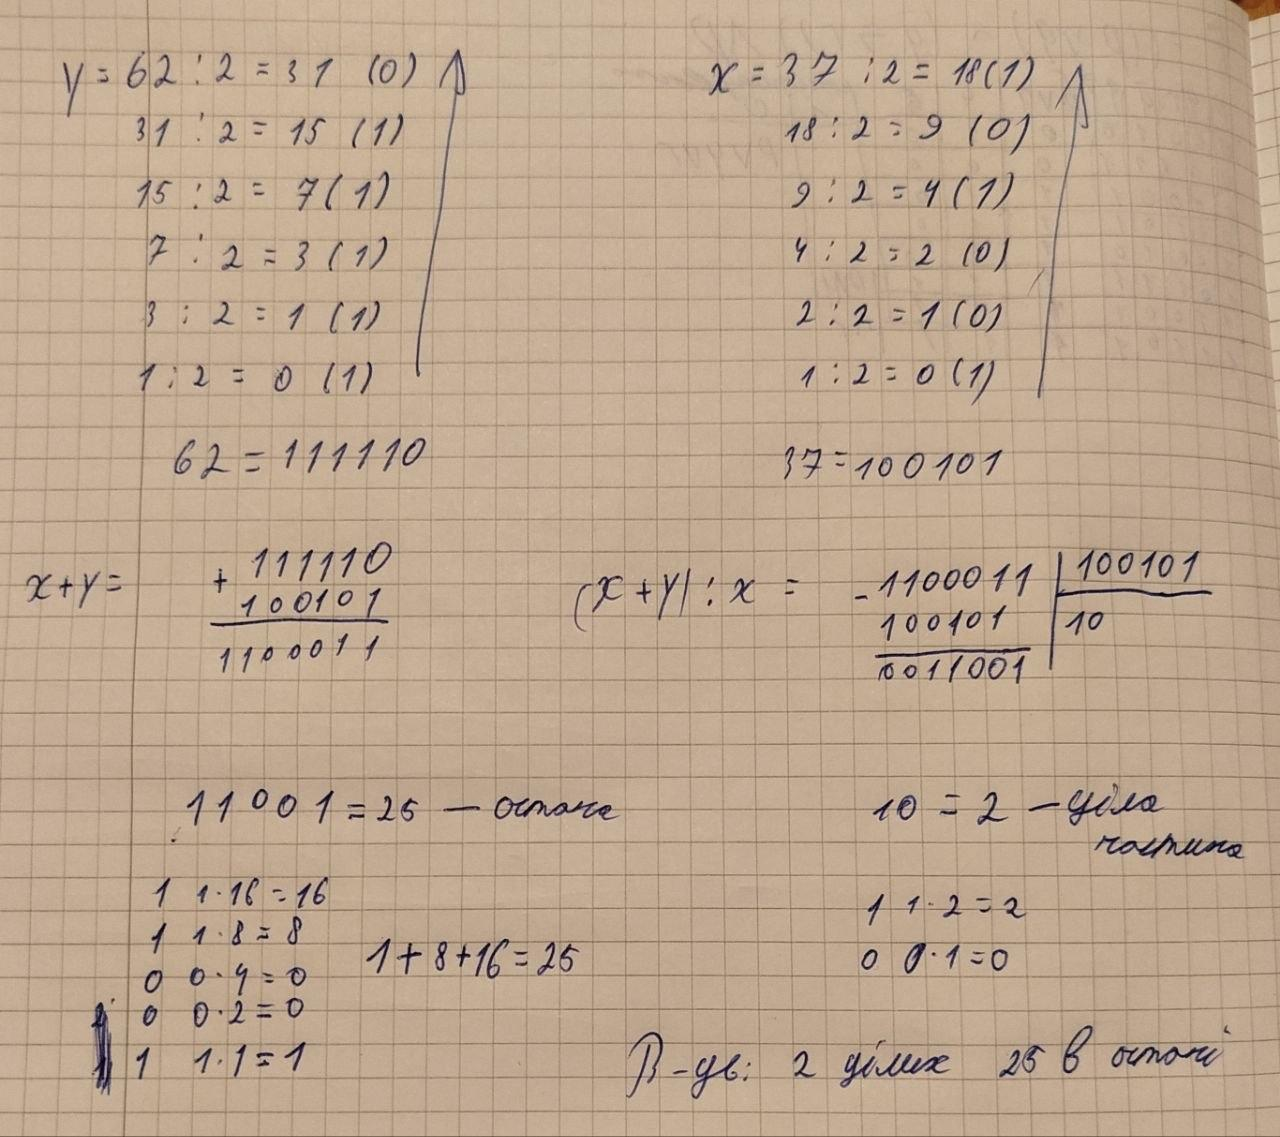 y = 62 : 2 = 31 (0)
31 : 2 = 15 (1)
15 : 2 = 7 (1)
7 : 2 = 3 (1)
3 : 2 = 1 (1)
1 : 2 = 0 (1)
62 = 111110
x = 37 : 2 = 18 (1)
18 : 2 = 9 (0)
9 : 2 = 4 (1)
4 : 2 = 2 (0)
2 : 2 = 1 (0)
1 : 2 = 0 (1)
37 = 100101
x + y =
+ 111110
100101
1100011
(x + y) : x =
- 1100011 | 100101
100101 | 10
0011001
11001 = 25 — остача
1 1·16 = 16
1 1·8 = 8
0 0·4 = 0
0 0·2 = 0
1 1·1 = 1
1 + 8 + 16 = 25
10 = 2 — ціла
частина
1 1·2 = 2
0 0·1 = 0
В-дь: 2 цілих 25 в остачі